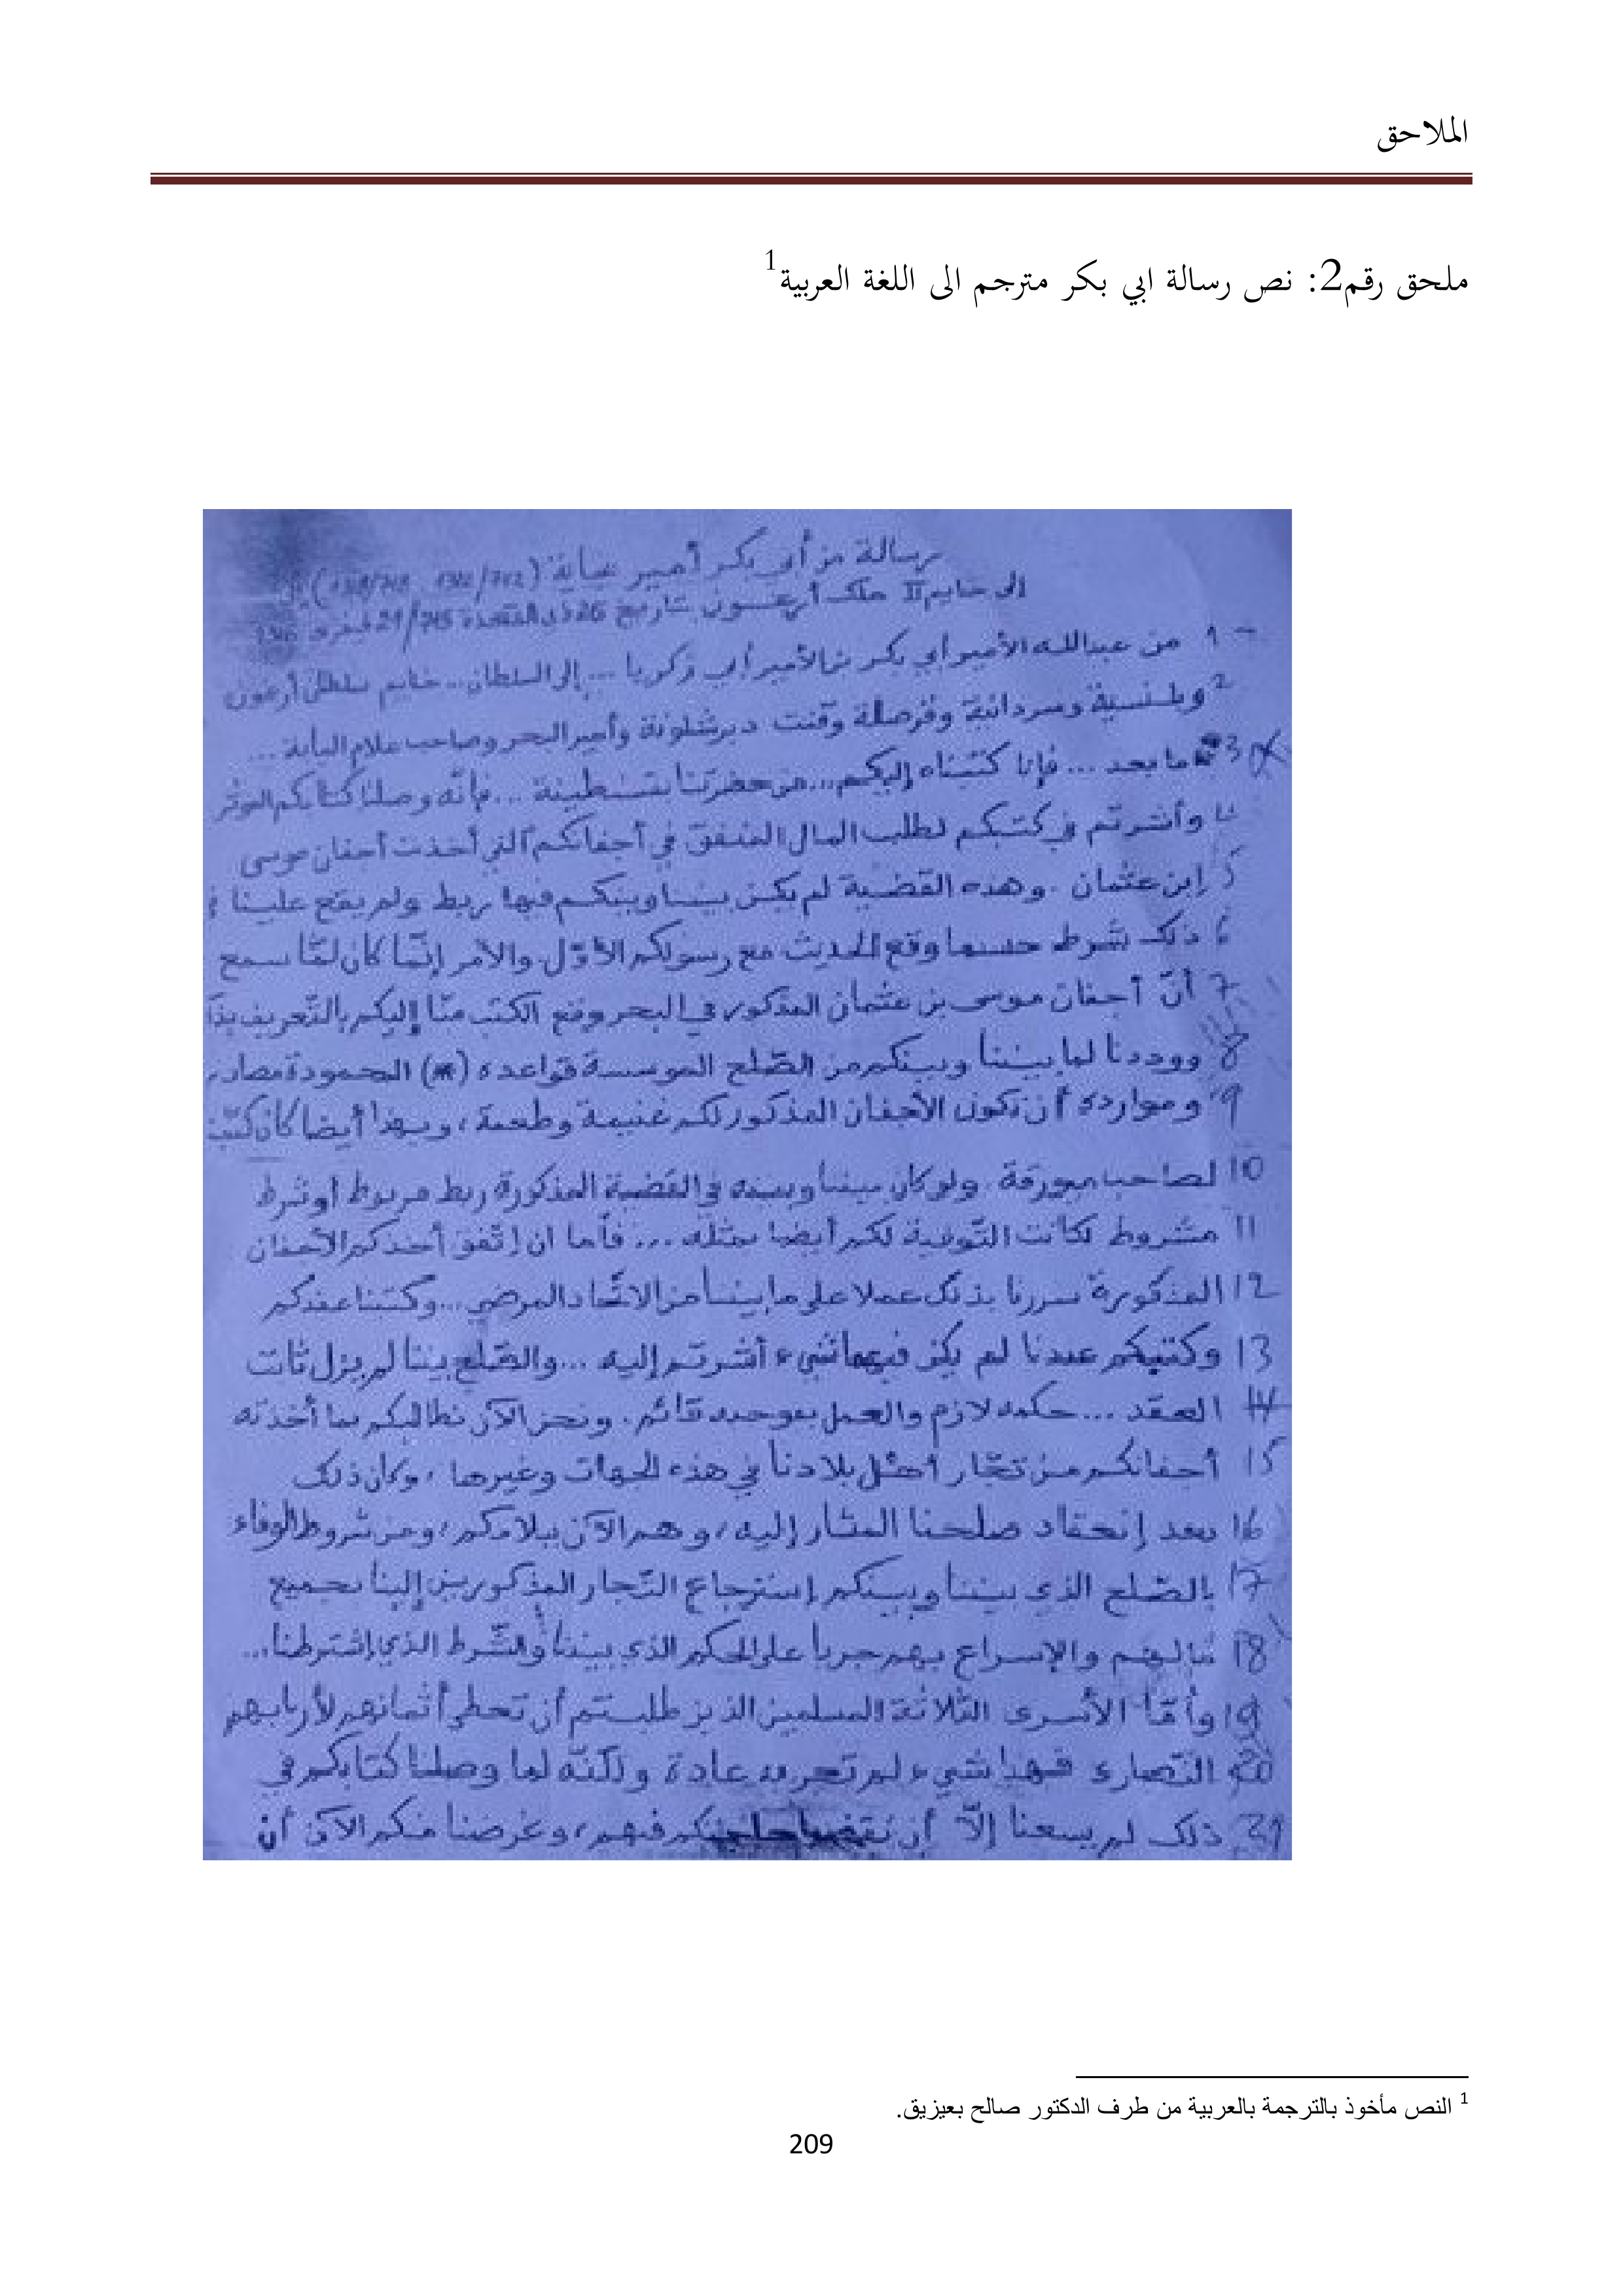 الملاحق
ملحق رقم2: نص رسالة ابي بكر مترجم الى اللغة العربية1
رسالة من أبي بكر أمير بجاية (712/1312
إلى خايم II ملك أرغون بتاريخ 26 ذي القعدة 715/21 فيفري
1 - من عبدالله الأمير أبي بكر بن الأمير أبي زكريا ... إلى السلطان ... خايم سلطان أرغون
2 وبلنسية وسردانية وقرصلة وقنت د برشلونة وأمير البحر وصاحب علام البابة ...
3 أما بعد ... فإنا كتبناه إليكم ... من حضرتنا بقسنطينة ... فإنّه وصلنا كتابكم
4 وأشرتم في كتبكم لطلب المال المنفق في أجفانكم التي أخذت أجفان موسى
5 إبن عثمان . وهذه القضية لم يكن بيننا وبينكم فيها ربط ولم يقع علينا في
6 ذلك شرط حسبما وقع الحديث مع رسولكم الأوّل . والأمر إنّما كان لمّا سمع
7 أنّ أجفان موسى بن عثمان المذكور في البحر وقع الكتب منّا إليكم بالتّعريف
8 ووددنا لما بيننا وبينكم من الصّلح الموسسة قواعده (*) المحمودة مصادره
9 وموارده أن تكون الأجفان المذكور لكم غنيمة وطعمة ، وبهذا أيضا كان كتب
10 لصاحب ميورقة . ولو كان بيننا وبينه في القضية المذكورة ربط مربوط أو شرط
11 مشروط لكانت التّوفية لكم أيضا بمثله ... فأما ان إتّفق أخذكم الأجفان
12 المذكورة سررنا بذلك عملا على ما بيننا من الاتّحاد المرضي ... وكتبنا عندكم
13 وكتبكم عندنا لم يكن فيهما شيء أشرتم إليه ... والصّلح بيننا لم يزل ثابت
14 العقد ... حكمه لازم والعمل بموجبه قائم . ونحن الآن نطالبكم بما أخذته
15 أجفانكم من تجّار أهل بلادنا في هذه الجهات وغيرها ، وكان ذلك
16 بعد إنعقاد صلحنا المشار إليه ، وهم الآن ببلادكم ، ومن شروط الوفاء
17 بالصّلح الذي بيننا وبينكم إسترجاع التّجار المذكورين إلينا بجميع
18 مالهم والإسراع بهم جريا على الحكم الذي بيننا والشّرط الذي إشترطنا ...
19 وأمّا الأسرى الثّلاثة المسلمين الذين طلبتم أن تعطى أثمانهم لأربابهم
20 النّصارى فهذا شيء لم تجر به عادة ولكنّه لما وصلنا كتابكم في
21 ذلك لم يسعنا إلاّ أن فيهم ، وغرضنا منكم الآن أن
1 النص مأخوذ بالترجمة بالعربية من طرف الدكتور صالح بعيزيق.
209